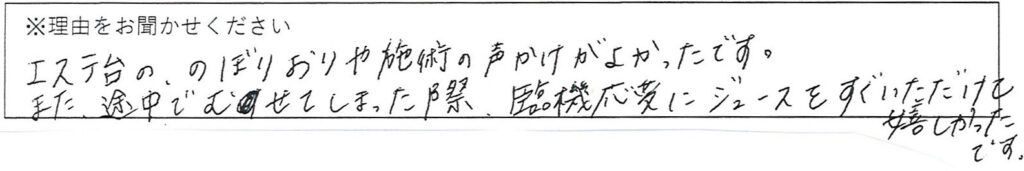 ※理由をお聞かせください
エステ台の、のぼりおりや施術の声かけがよかったです。
また、途中でむせてしまった際、臨機応変にジュースをすぐいただけて
嬉しかった
です。